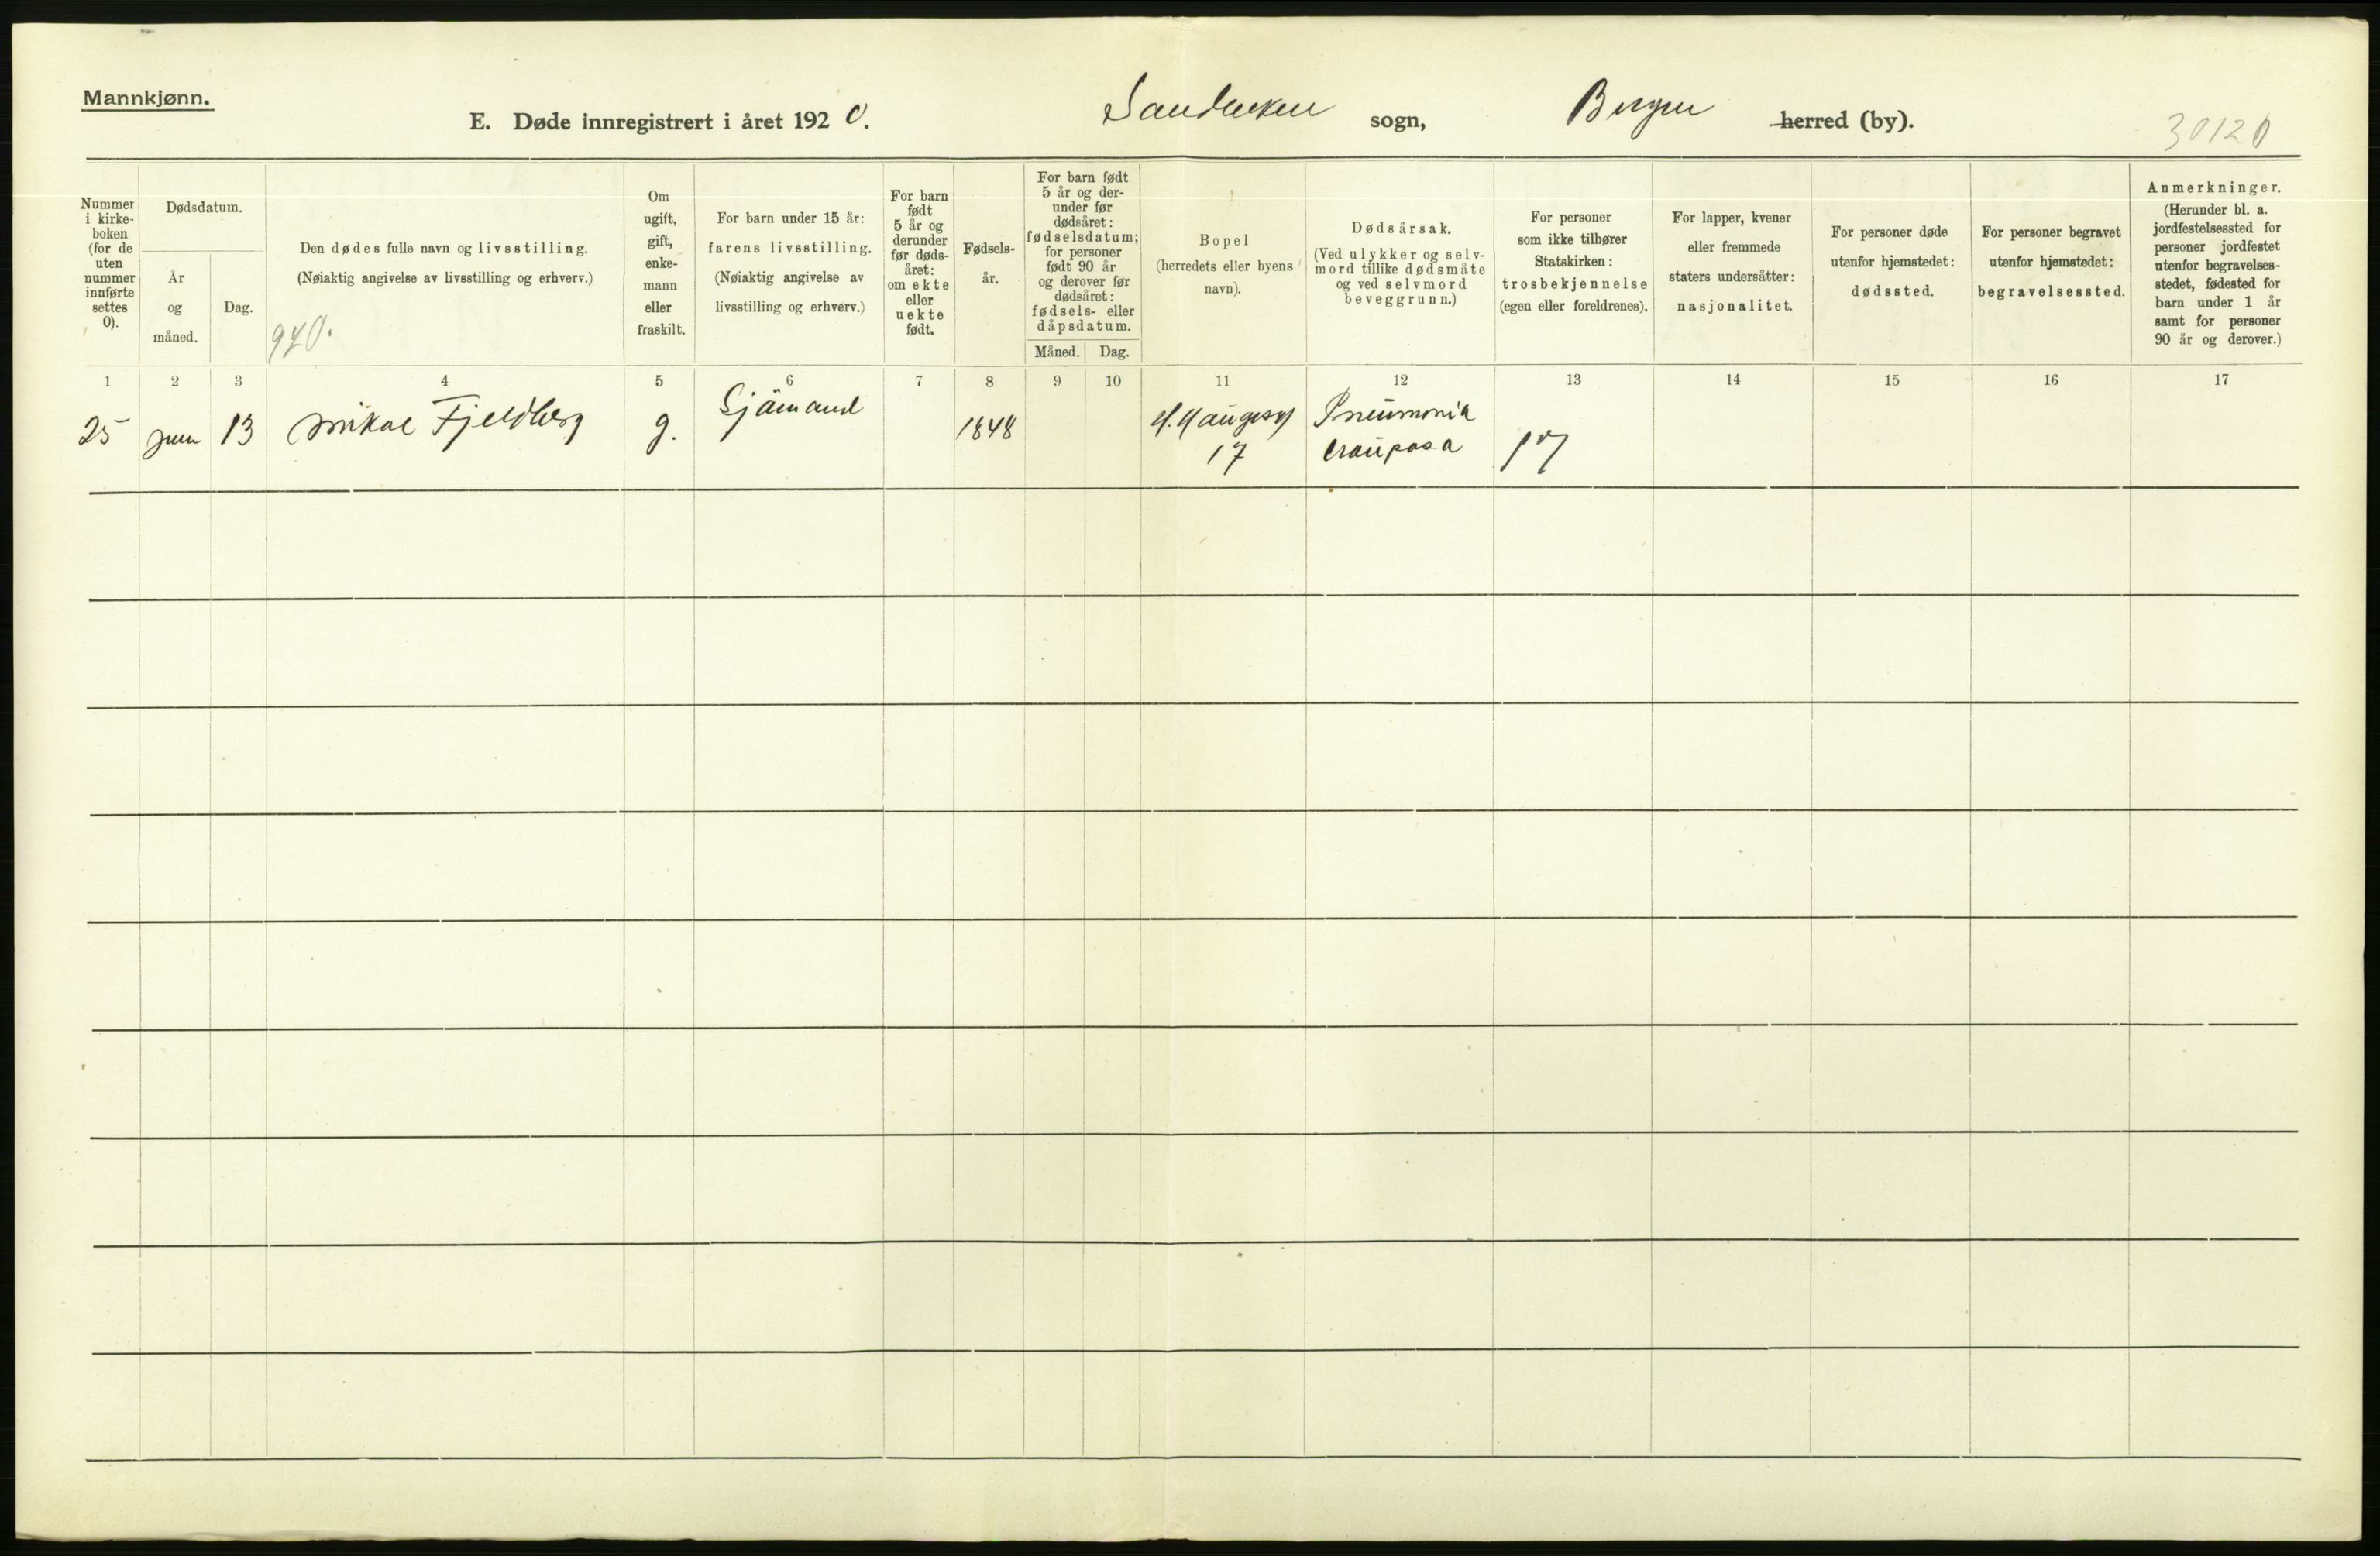 Mannkjønn.
E. Døde innregistrert i året 1920. Sandviken sogn, Bergen herred (by).
30120
Nummer i kirke-
boken
(for de
uten
nummer
innførte
settes
0).
Dødsdatum.
År
og
måned.
Dag.
Den dødes fulle navn og livsstilling.
(Nøiaktig angivelse av livsstilling og erhverv.)
940.
Om
ugift,
gift,
enke-
mann
eller
fraskilt.
For barn under 15 år:
farens livsstilling.
(Nøiaktig angivelse av
livsstilling og erhverv.)
For barn
født
5 år og
derunder
før døds-
året:
om ekte
eller
uekte
født.
Fødsels-
år.
For barn født
5 år og der-
under før
dødsåret:
fødselsdatum;
for personer
født 90 år
og derover før
dødsåret:
fødsels- eller
dåpsdatum.
Måned. Dag.
Bopel
(herredets eller byens
navn).
Dødsårsak.
(Ved ulykker og selv-
mord tillike dødsmåte
og ved selvmord
beveggrunn.)
For personer
som ikke tilhører
Statskirken:
trosbekjennelse
(egen eller foreldrenes).
For lapper, kvener
eller fremmede
staters undersåtter:
nasjonalitet.
For personer døde
utenfor hjemstedet:
dødssted.
For personer begravet
utenfor hjemstedet:
begravelsessted.
Anmerkninger.
(Herunder bl. a.
jordfestelsessted for
personer jordfestet
utenfor begravelses-
stedet, fødested for
barn under 1 år
samt for personer
90 år og derover.)
1 2 3 4 5 6 7 8 9 10 11 12 13 14 15 16 17
25 juni 13 Mikal Fjeldberg g. Sjömand 1848
17
Pneumonia
crouposa